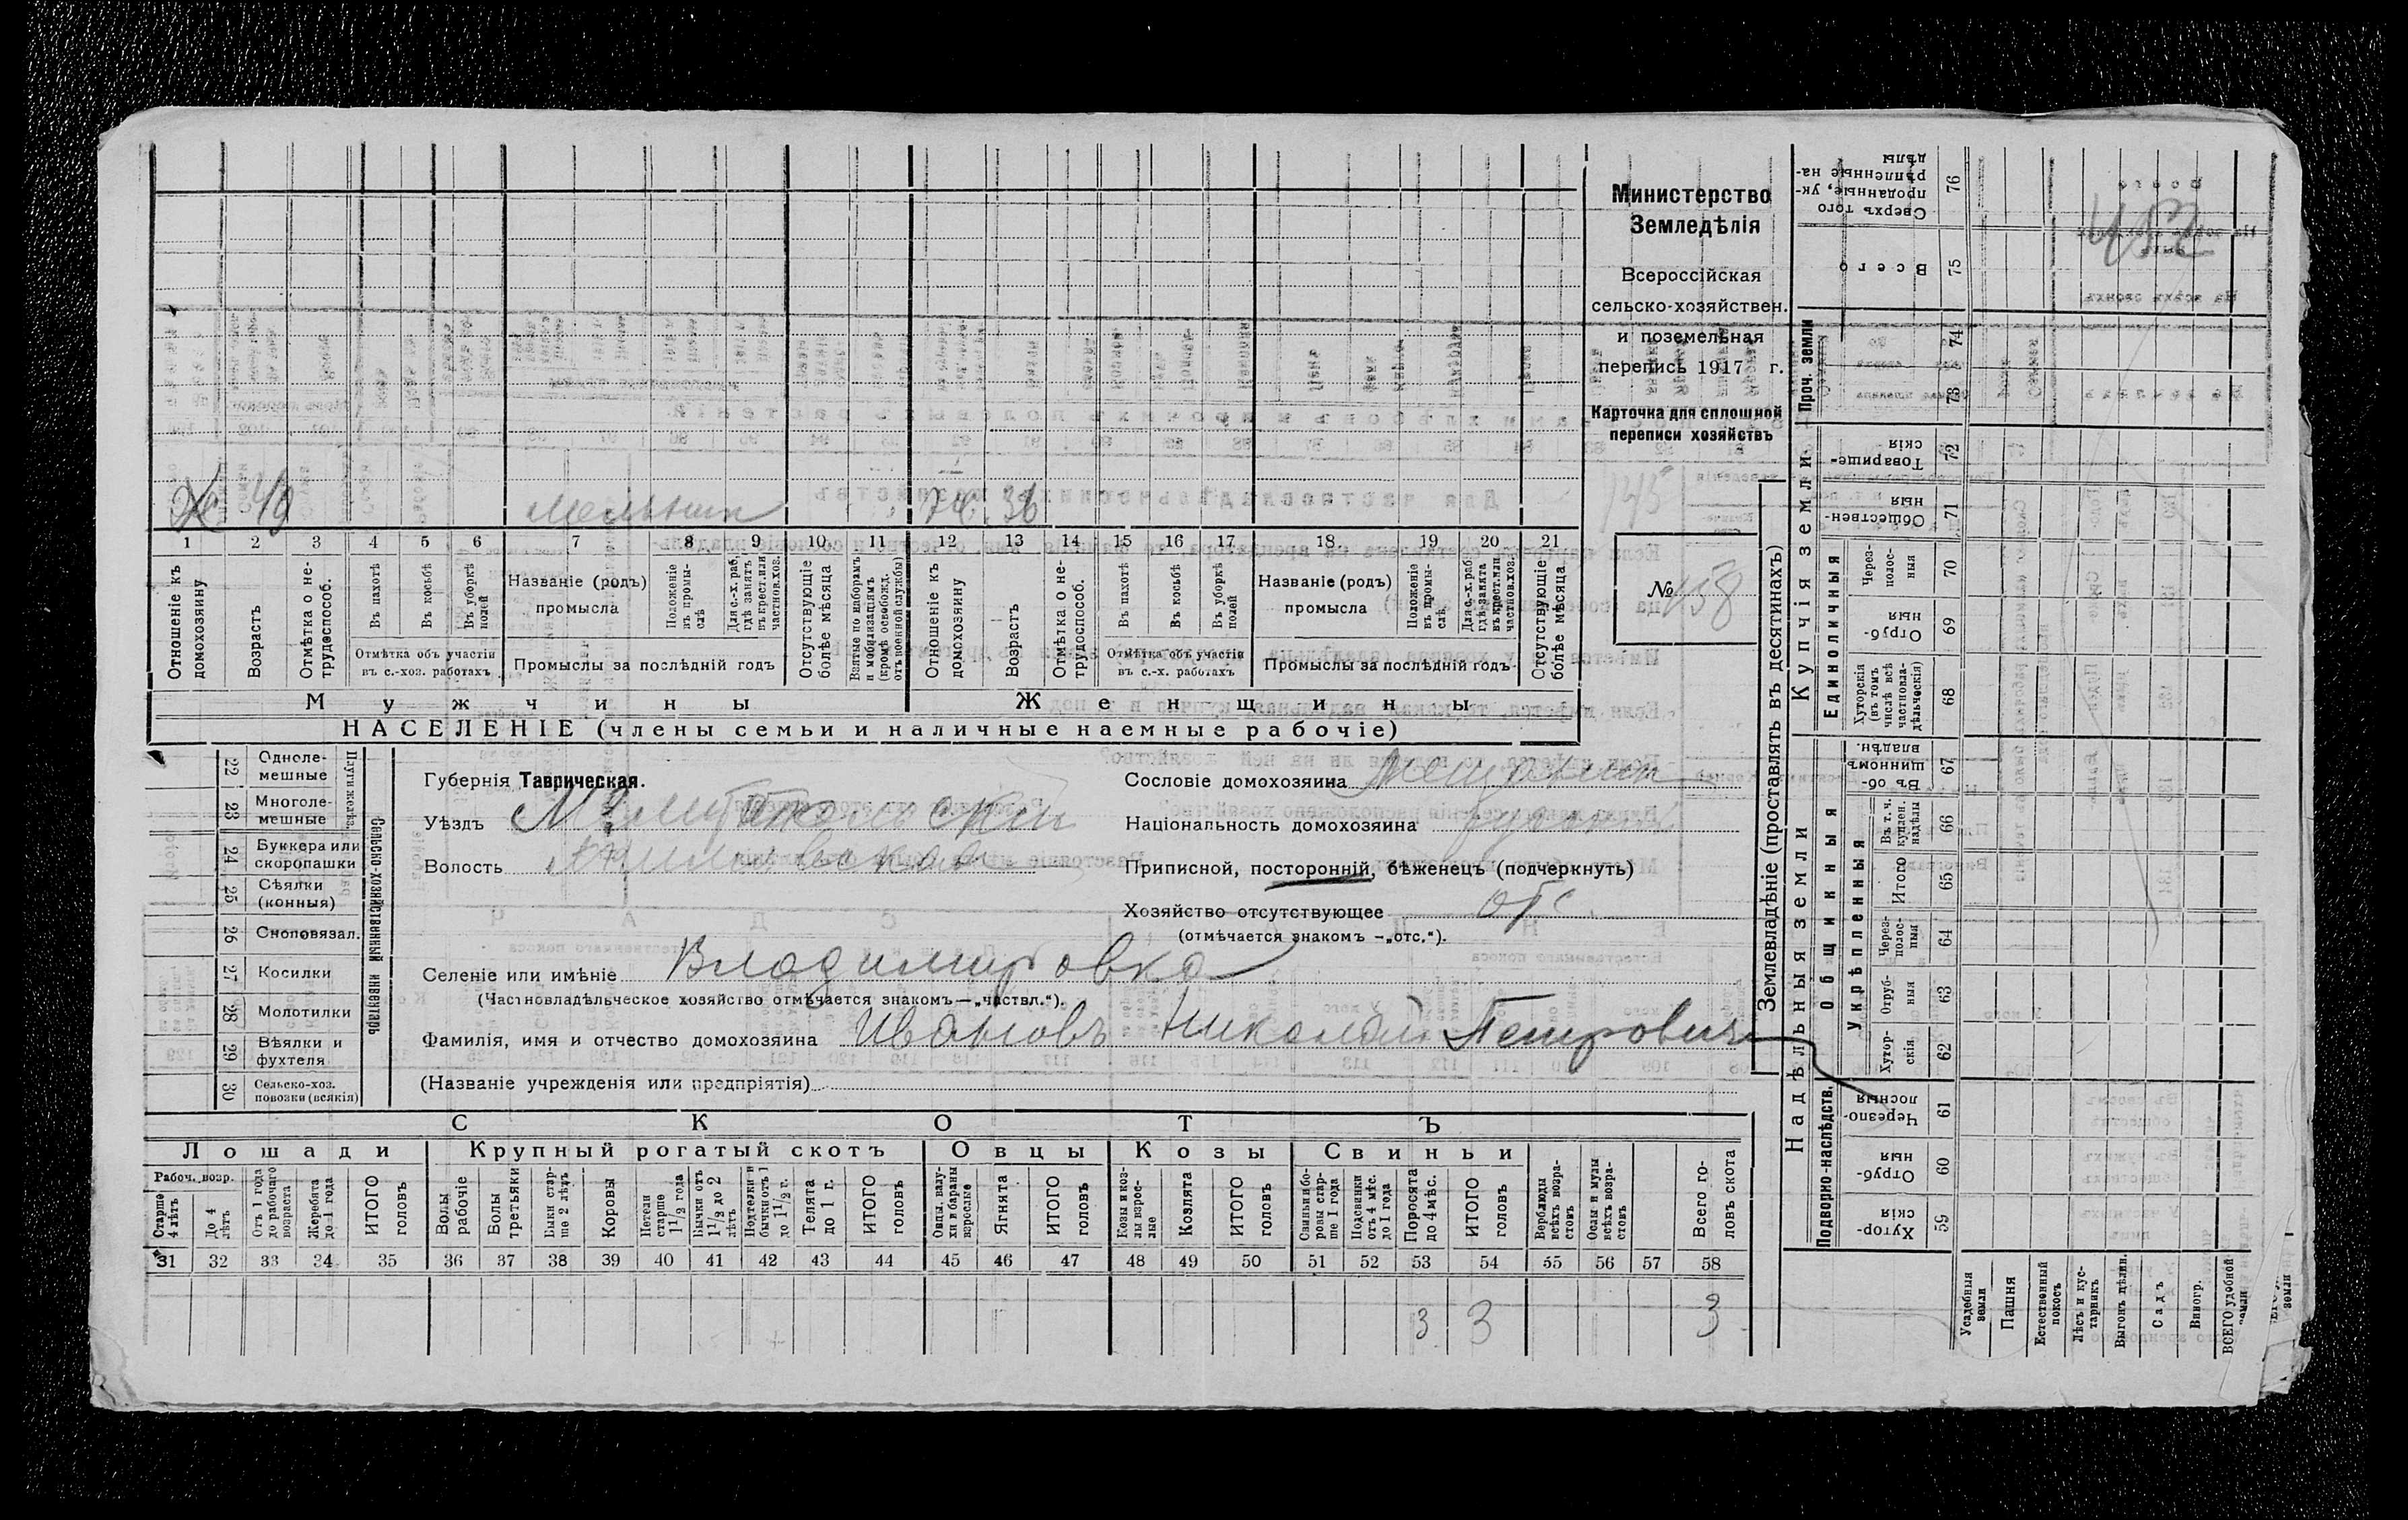 Министерство
Земледѣлія
Всероссійская
сельско-хозяйствен.
и поземельная
перепись 1917 г.
Карточка для сплошной
переписи хозяйствъ
№ 158
452
49 Мельник Ж. 36
1 2 3 4 5 6 7 8 9 10 11 12 13 14 15 16 17 18 19 20 21
Отношеніе къ домохозяину
Возрастъ
Отмѣтка о нетрудоспособ.
Въ пахотѣ
Въ косьбѣ
Въ уборкѣ полей
Отмѣтка объ участіи
въ с.-хоз. работахъ
Названіе (родъ)
промысла
Положеніе въ промыслѣ
Для с.-х. раб. гдѣ занятъ въ крест. или частнов. хоз.
Промыслы за послѣдній годъ
Отсутствующіе болѣе мѣсяца
Взятые по наборамъ и мобилизаціямъ (кромѣ освобожд. отъ военной службы)
Отношеніе къ домохозяину
Возрастъ
Отмѣтка о нетрудоспособ.
Въ пахотѣ
Въ косьбѣ
Въ уборкѣ полей
Отмѣтка объ участіи
въ с.-х. работахъ
Названіе (родъ)
промысла
Положеніе въ промыслѣ
Для с.-х. раб. гдѣ занята въ крест. или частнов. хоз.
Промыслы за послѣдній годъ
Отсутствующіе болѣе мѣсяца
Мужчины Женщины
НАСЕЛЕНІЕ (члены семьи и наличные наемные рабочіе)
22 Одноле-
мешные
23 Многоле-
мешные
Плуги желѣз.
24 Буккера или
скоропашки
25 Сѣялки
(конныя)
26 Сноповязал.
27 Косилки
28 Молотилки
29 Вѣялки и
фухтеля
30 Сельско-хоз.
повозки (всякія)
Сельско-хозяйственный инвентарь
Губернія Таврическая.
Уѣздъ Мелитопольскій
Волость
Сословіе домохозяина Мещанин
Національность домохозяина русскій
Приписной, посторонній, бѣженецъ (подчеркнуть)
Хозяйство отсутствующее отс.
(отмѣчается знакомъ —„отс.“).
Селеніе или имѣніе Владимировка
(Частновладѣльческое хозяйство отмѣчается знакомъ—„частвл.“).
Фамилія, имя и отчество домохозяина Ивановъ Николай Петрович
(Названіе учрежденія или предпріятія)
СКОТЪ
Лошади Крупный рогатый скотъ Овцы Козы Свиньи
Рабоч. возр.
Старше 4 лѣтъ
До 4 лѣтъ
Отъ 1 года до рабочаго возраста
Жеребята до 1 года
ИТОГО головъ
Волы рабочіе
Волы третьяки
Быки старше 2 лѣтъ
Коровы
Нетели старше 1 1/2 года
Бычки отъ 1 1/2 до 2 лѣтъ
Подтелки и бычки отъ 1 до 1 1/2 г.
Телята до 1 г.
ИТОГО головъ
Овцы, валухи и бараны взрослые
Ягнята
ИТОГО головъ
Козы и козлы взрослые
Козлята
ИТОГО головъ
Свиньи и боровы старше 1 года
Подсвинки отъ 4 мѣс. до 1 года
Поросята до 4 мѣс.
ИТОГО головъ
Верблюды всѣхъ возрастовъ
Ослы и мулы всѣхъ возрастовъ
Всего головъ скота
31 32 33 34 35 36 37 38 39 40 41 42 43 44 45 46 47 48 49 50 51 52 53 54 55 56 57 58
3 3 3
Землевладѣніе (проставлять въ десятинахъ)
Надѣльныя земли
Купчія земли
Проч. земли
Подворно-наслѣдств.
Общинныя
Укрѣпленныя
Единоличныя
Сверхъ того проданные, укрѣпленные надѣлы 76
Всего 75
74
73
Товарищескія 72
Общественныя 71
Черезполосныя 70
Отрубныя 69
Хуторскія (въ томъ числѣ всѣ частновладѣльческія) 68
Въ общинномъ владѣн. 67
Въ т. ч. куплен. надѣлы 66
Итого 65
Черезполосныя 64
Отрубныя 63
Хуторскія 62
Черезполосныя 61
Отрубныя 60
Хуторскія 59
Усадебныя земли
Пашня
Естественный покосъ
Лѣсъ и кустарникъ
Выгонъ дѣлин.
Садъ
Виногр.
ВСЕГО удобной земли